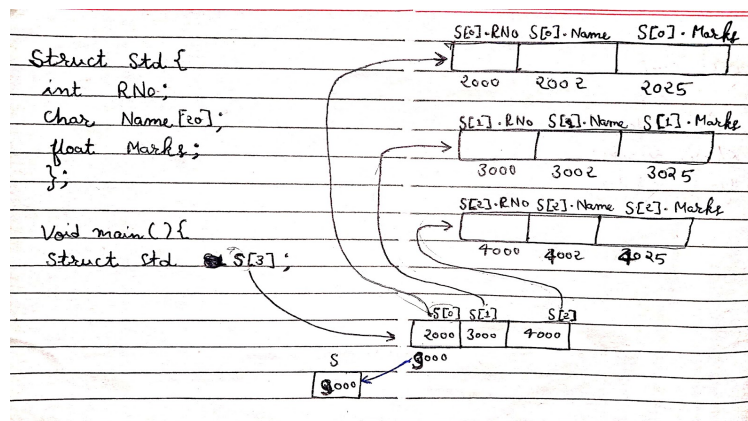 Struct Std {
int RNo;
Char Name[20];
float Marks;
};
Void main(){
Struct Std S[3];
S[0].RNo S[0].Name S[0].Marks
2000 2002 2025
S[1].RNo S[1].Name S[1].Marks
3000 3002 3025
S[2].RNo S[2].Name S[2].Marks
4000 4002 4025
S[0] S[1] S[2]
2000 3000 4000
9000
S
9000